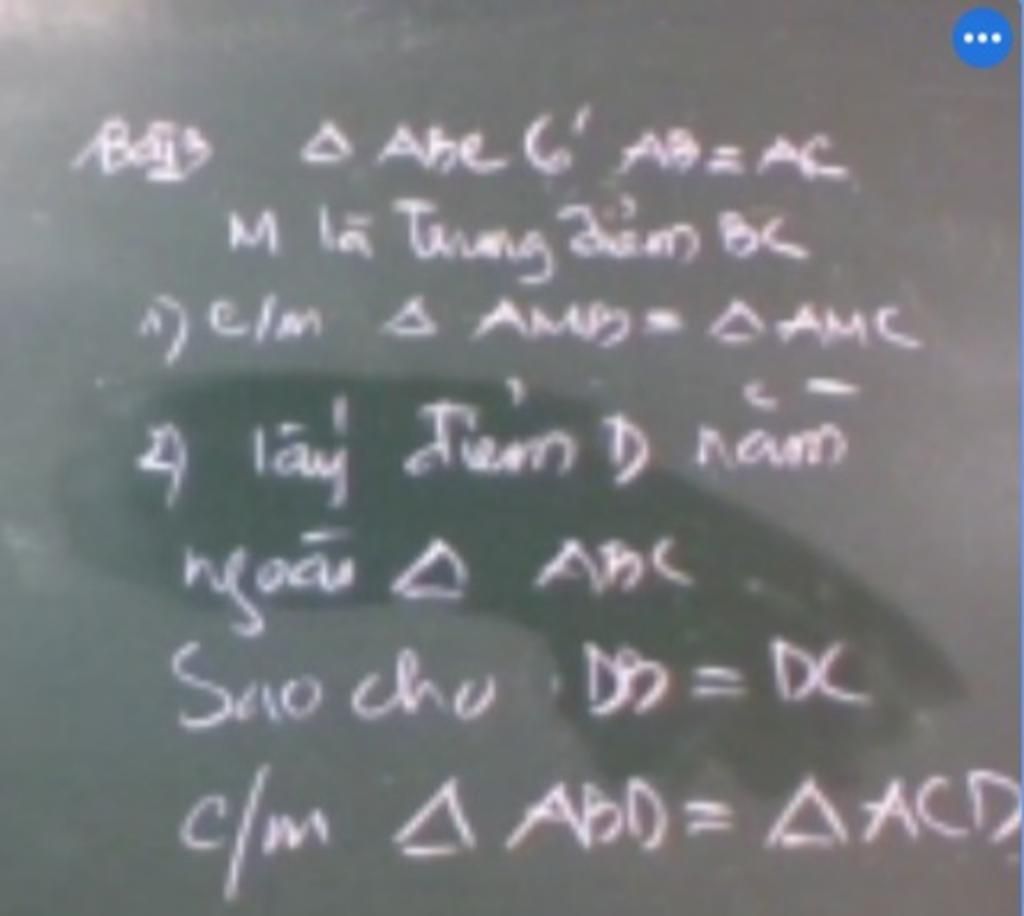 Bài 3 Δ ABC Có AB = AC
M là Trung điểm BC
1) c/m Δ AMB = Δ AMC
2) lấy điểm D nằm
ngoài Δ ABC
Sao cho DB = DC
c/m Δ ABD = Δ ACD